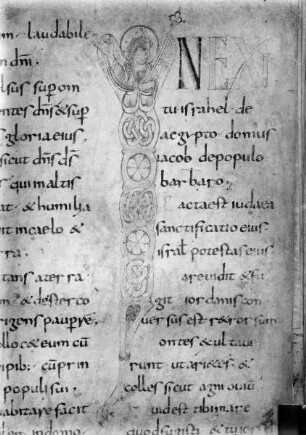 m laudabile
in dñi
lsus sup om
entes dñs & sup
s gloria eius
sicut dñs ds
s qui in altis
at & humilia
it in caelo &
ra
tans a terra
m & de sterco
rigens pauperē
lloc& eum cū
ipib; cū prin
populi sui
abitare facit
in domo
IN EXI
tu israhel de
aegypto domus
iacob de populo
barbaro
Facta est iudaea
sanctificatio eius
israł potestas eius
are uidit & fu
git iordanis con
uersus est r&rorsum
ontes exulta
runt ut ari&es &
colles sicut agni ouiū
uid est tibi mare
quod fugisti & tu